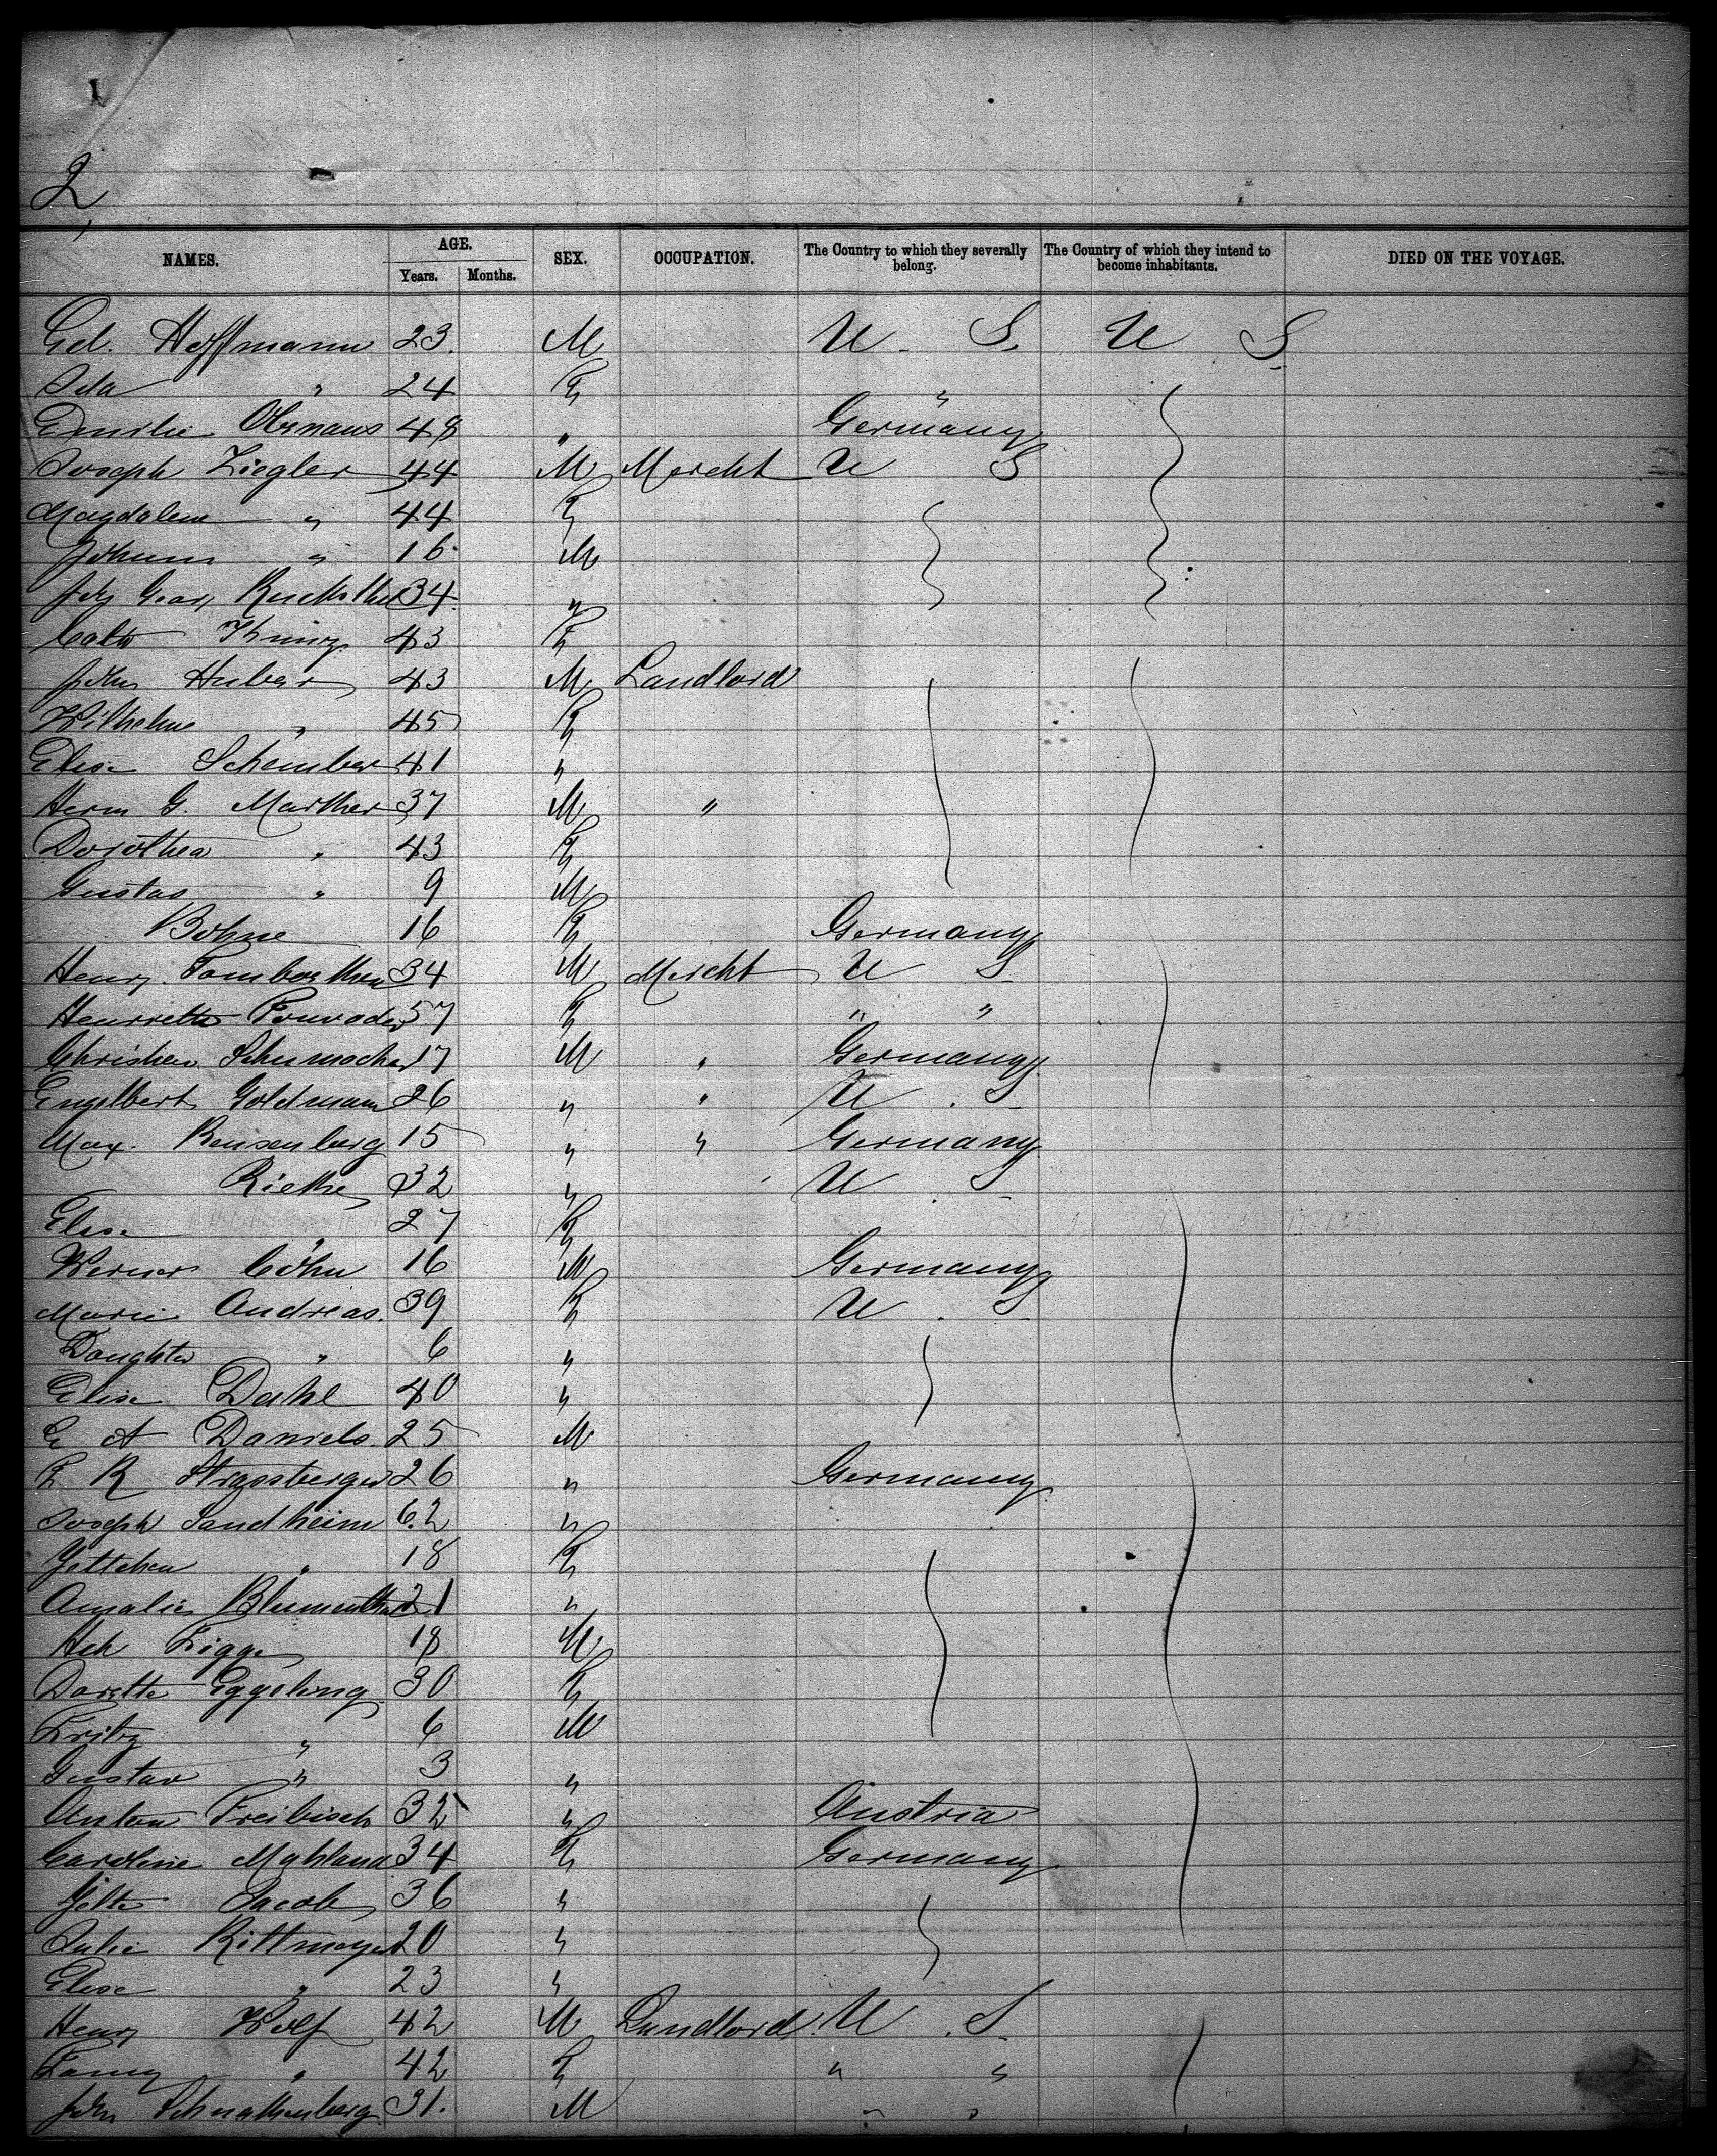 2
NAMES. AGE. Years. Months. SEX. OCCUPATION. The Country to which they severally belong. The Country of which they intend to become inhabitants. DIED ON THE VOYAGE.
Ed. Hoffmann 23. M U. S. U S
Ida " 24 F "
Emilie 48 " Germany
Joseph Ziegler 44 M Mercht U S
Magdalene " 44 F
Johann " 16 M
Joh Georg 34 "
43 F
John Huber 43 M Landlord
Wilhelme " 45 F
Elise Schember 41 "
Herm G. Marther 37 M "
Dorothea " 43 F
Gustav " 9 M
Bohne 16 F Germany
Henry 34 M Mercht U S
Henriette 57 F " "
Christian Schumacher 17 M " Germany
Engelbert Goldmann 26 " " U. S
Max. Bensenberg 15 " " Germany
Riethe 32 " U. S
Elise " 27 F
Werner Cohn 16 M Germany
Marie Andreas. 39 F U. S
Daughter " 6 "
Elise Dahl 40 "
E A Daniels. 25 M
F R Strassberger 26 " Germany
Joseph Sandheim 62 "
Jettchen " 18 F
Amalie Blumenthal 21 "
Hch Figge 18 M
Dorette Eggeling 30 F
Fritz " 6 M
Gustav " 3 "
Anton Freibisch 32 " Austria
Caroline Mahland 34 F Germany
Jette Jacob 36 "
Julie Rittmeyer 20 "
Elise " 23 "
Henry Wolf 42 M Landlord U. S.
Fanny " 42 F " "
John Schnakenberg 31. M " "